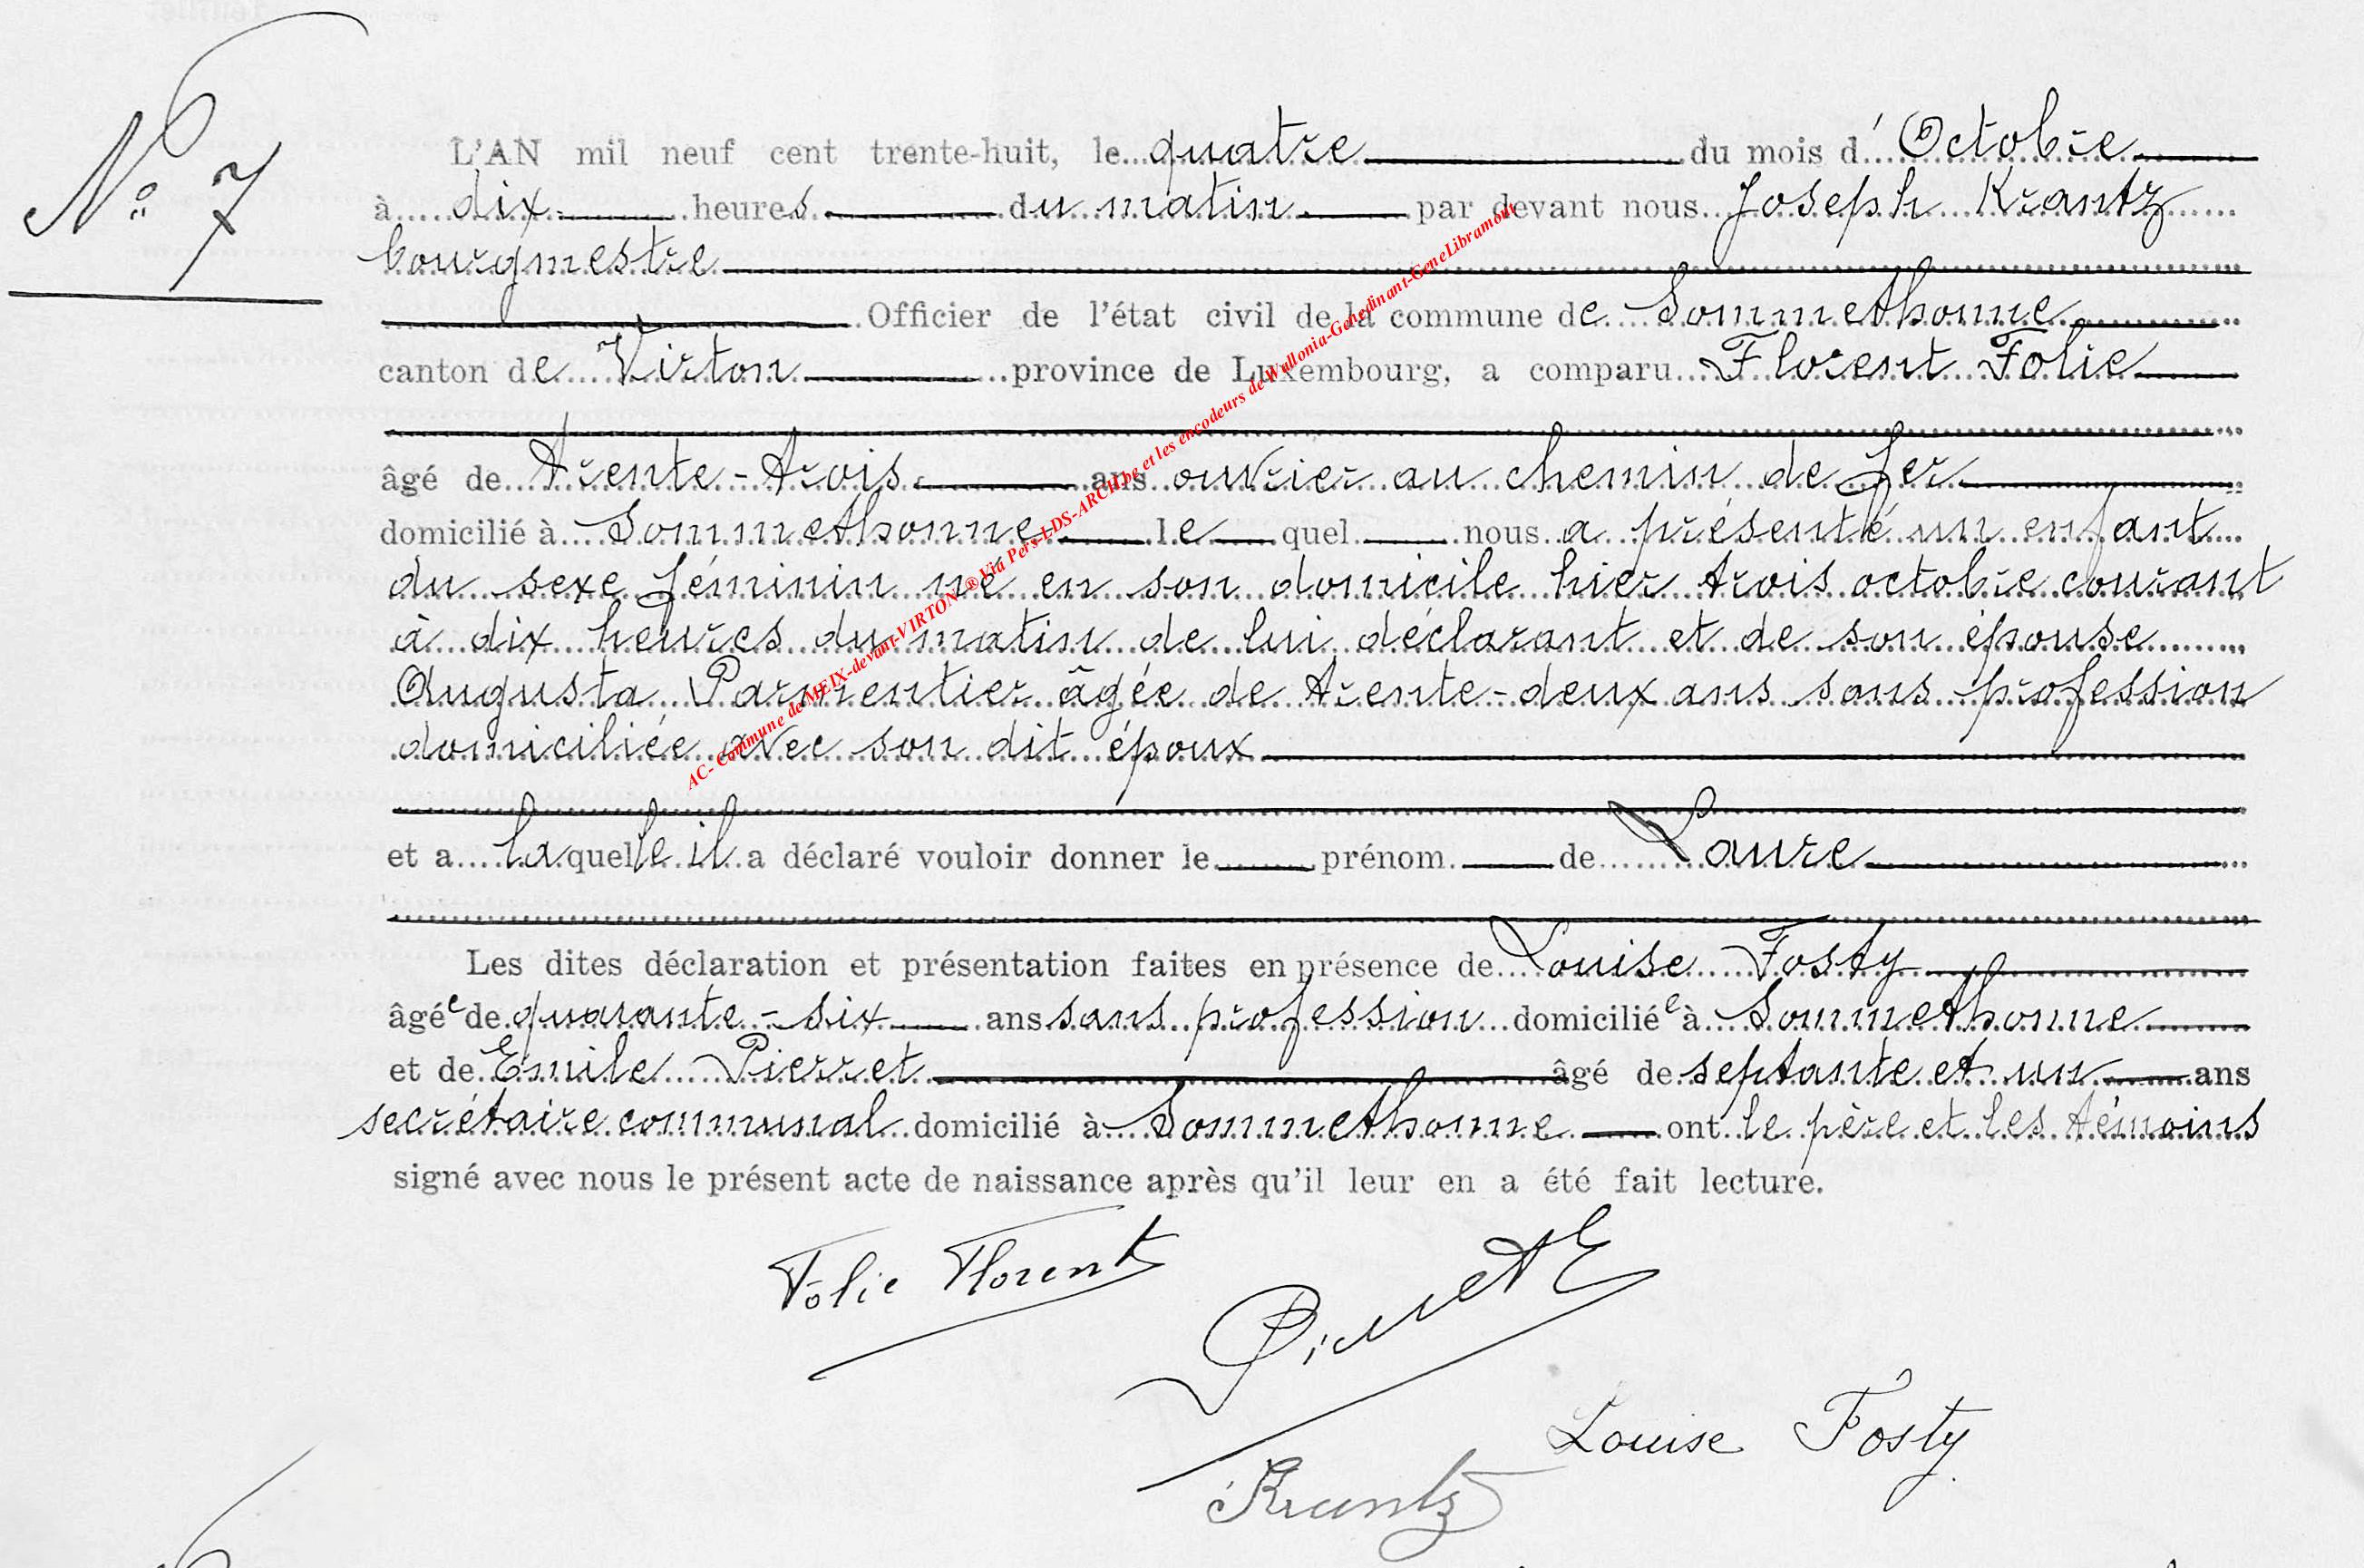 N° 7
L'AN mil neuf cent trente-huit, le quatre du mois d'Octobre
à dix heures du matin par devant nous Joseph Krantz
bourgmestre
Officier de l'état civil de la commune de Sommethonne
canton de Virton province de Luxembourg, a comparu Florent Folie
âgé de trente-trois ans ouvrier au chemin de fer
domicilié à Sommethonne lequel nous a présenté un enfant
du sexe féminin né en son domicile hier trois octobre courant
à dix heures du matin de lui déclarant et de son épouse
Augusta Parmentier âgée de trente-deux ans sans profession
domiciliée avec son dit époux
et a laquelle il a déclaré vouloir donner le prénom de Laure
Les dites déclaration et présentation faites en présence de Louise Fosty
âgée de quarante-six ans sans profession domiciliée à Sommethonne
et de Emile Pierret âgé de septante et un ans
secrétaire communal domicilié à Sommethonne ont le père et les témoins
signé avec nous le présent acte de naissance après qu'il leur en a été fait lecture.
Folie Florent
Pierret E
Louise Fosty
Krantz
AC- Commune de MEIX-devant-VIRTON ® Via Pers-LDS-ARCH.be et les encodeurs de Wallonia-Genedinant-GeneLibramont